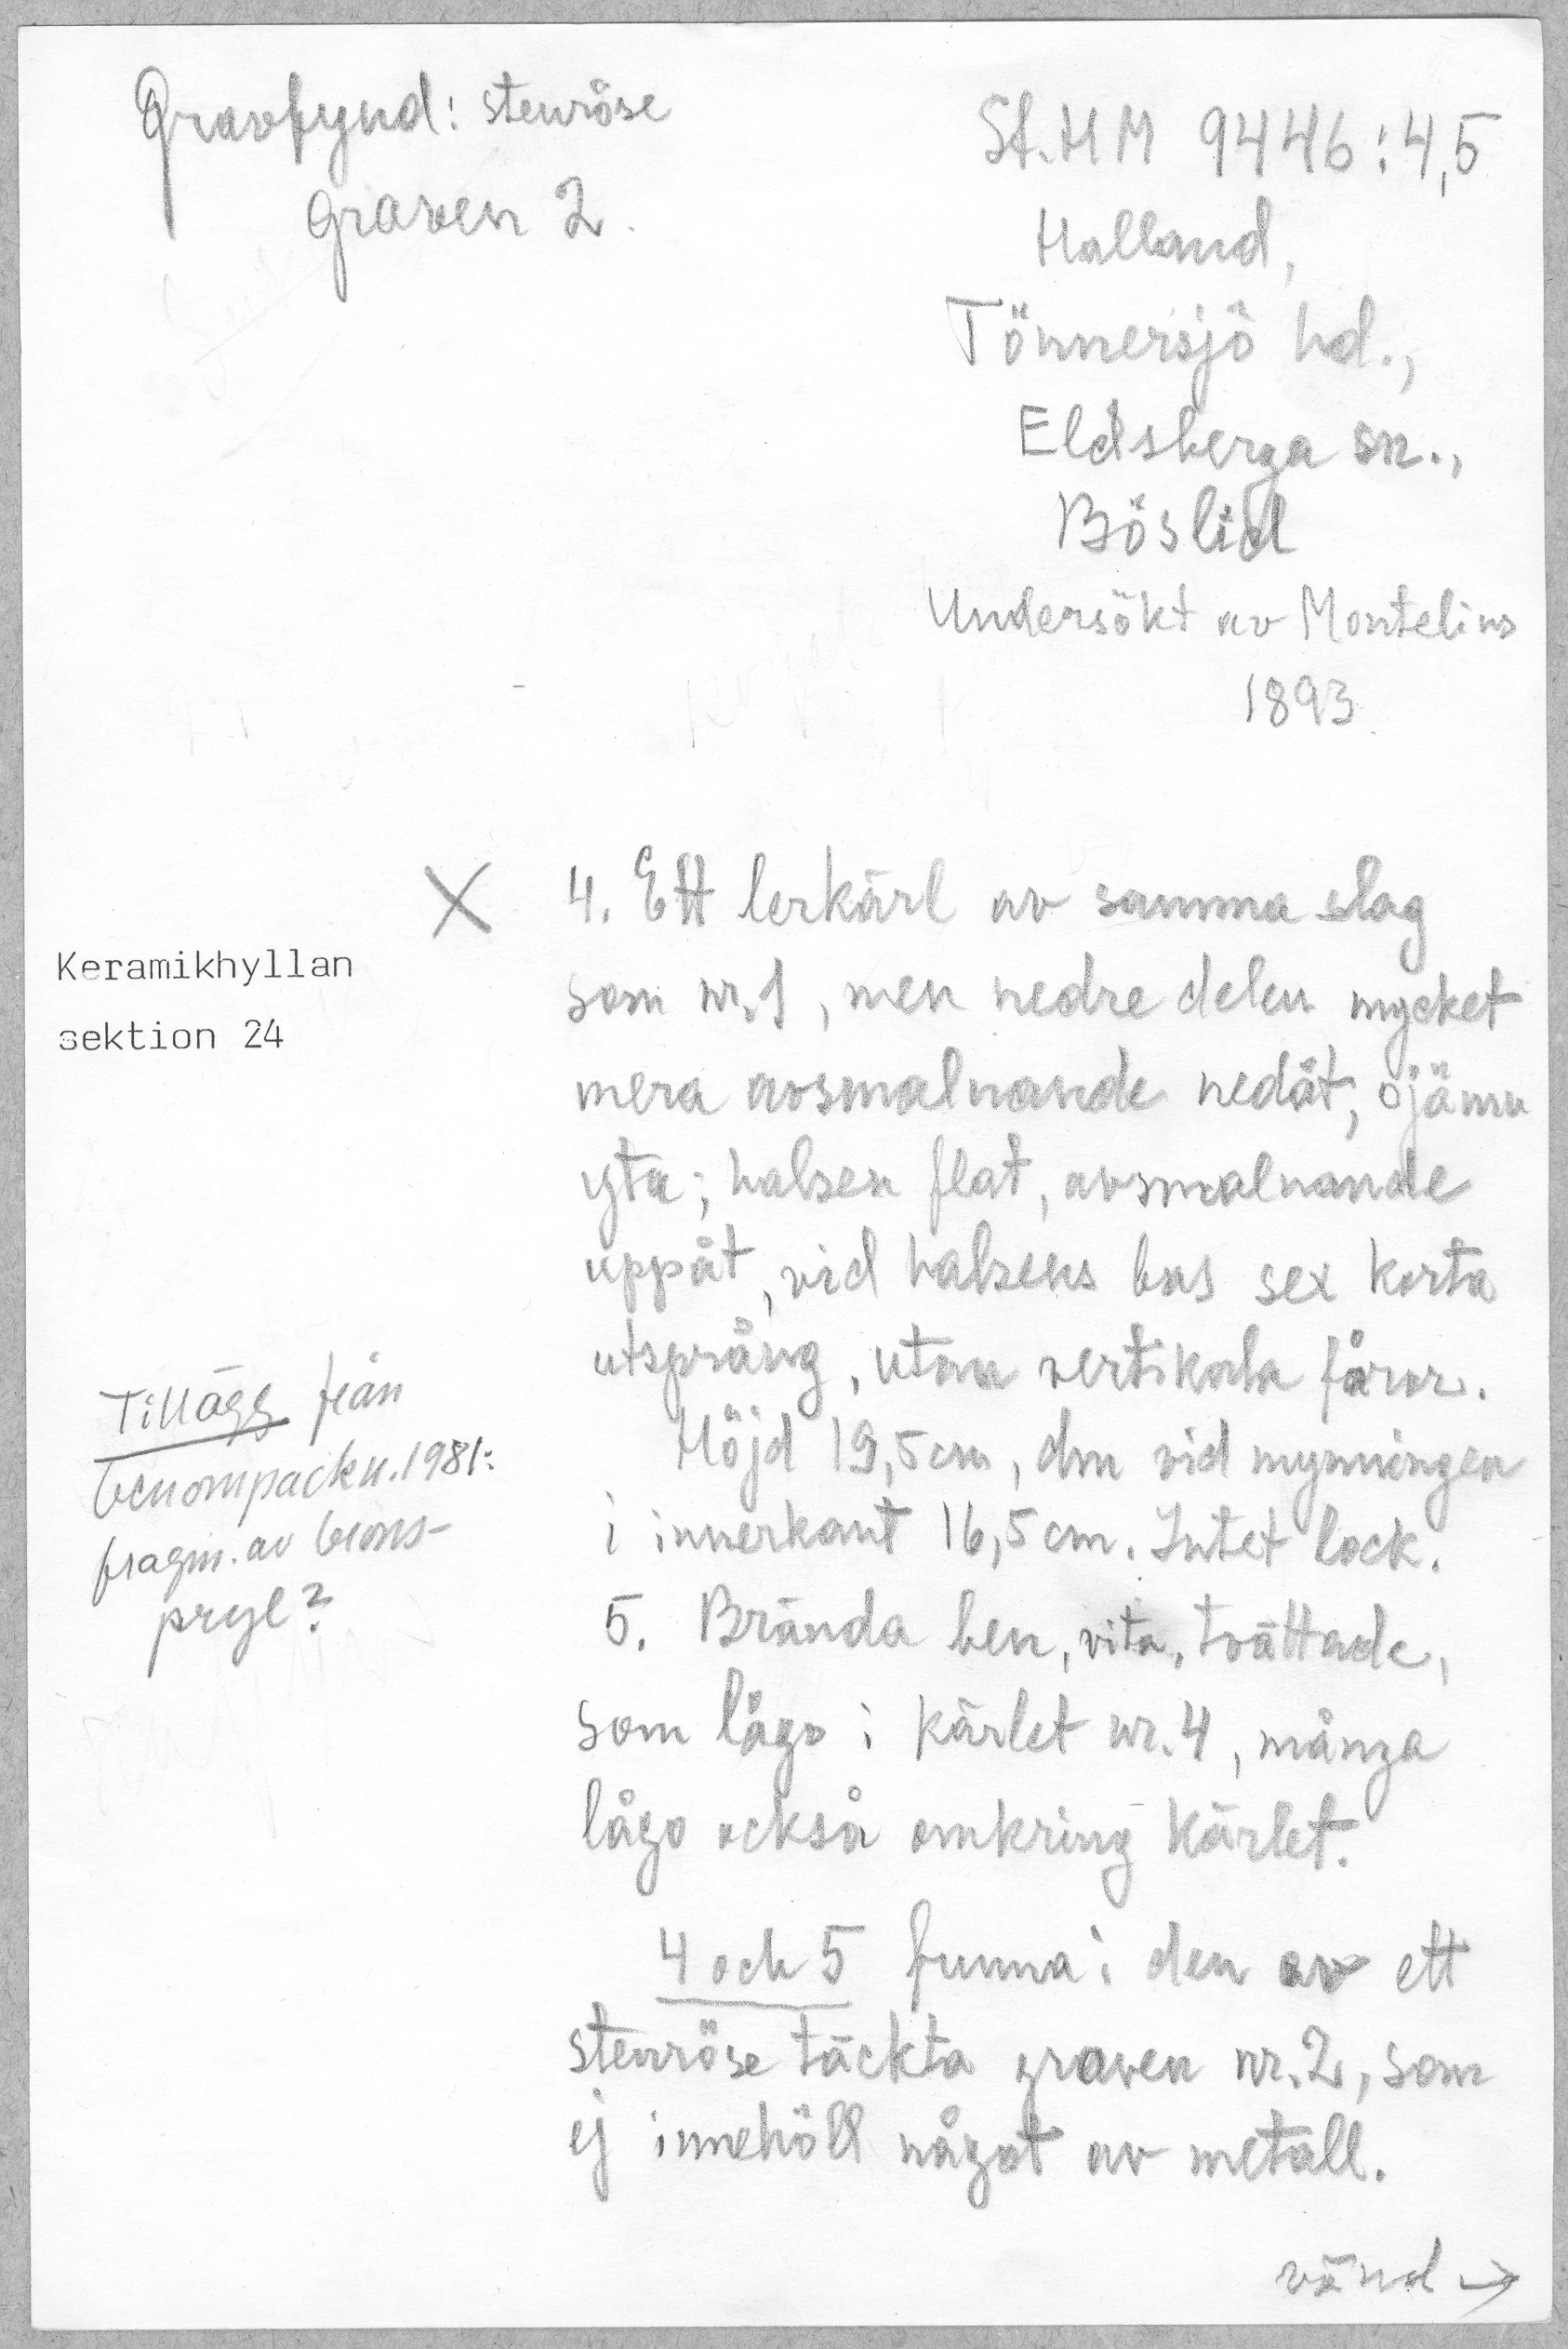 Gravfynd: stenröse
graven 2.
St. HM 9446:4,5
Halland,
Tönnersjö hd.,
Eldsberga sn.,
Böslid
Undersökt av Montelius
1893.
X
Keramikhyllan
sektion 24
4. Ett lerkärl av samma slag
som nr. 1, men nedre delen mycket
mera avsmalnande nedåt, ojämn
yta; halsen flat, avsmalnande
uppåt, vid halsens bas sex korta
utsprång, utan vertikala fåror.
Höjd 19,5 cm, dm vid mynningen
i innerkant 16,5 cm. Intet lock.
5. Brända ben, vita, tvättade,
som lågo i kärlet nr. 4, många
lågo också omkring kärlet.
4 och 5 funna i den av ett
stenröse täckta graven nr. 2, som
ej innehöll något av metall.
vänd →
Tillägg från
benompackn. 1981:
fragm. av brons-
pryl?